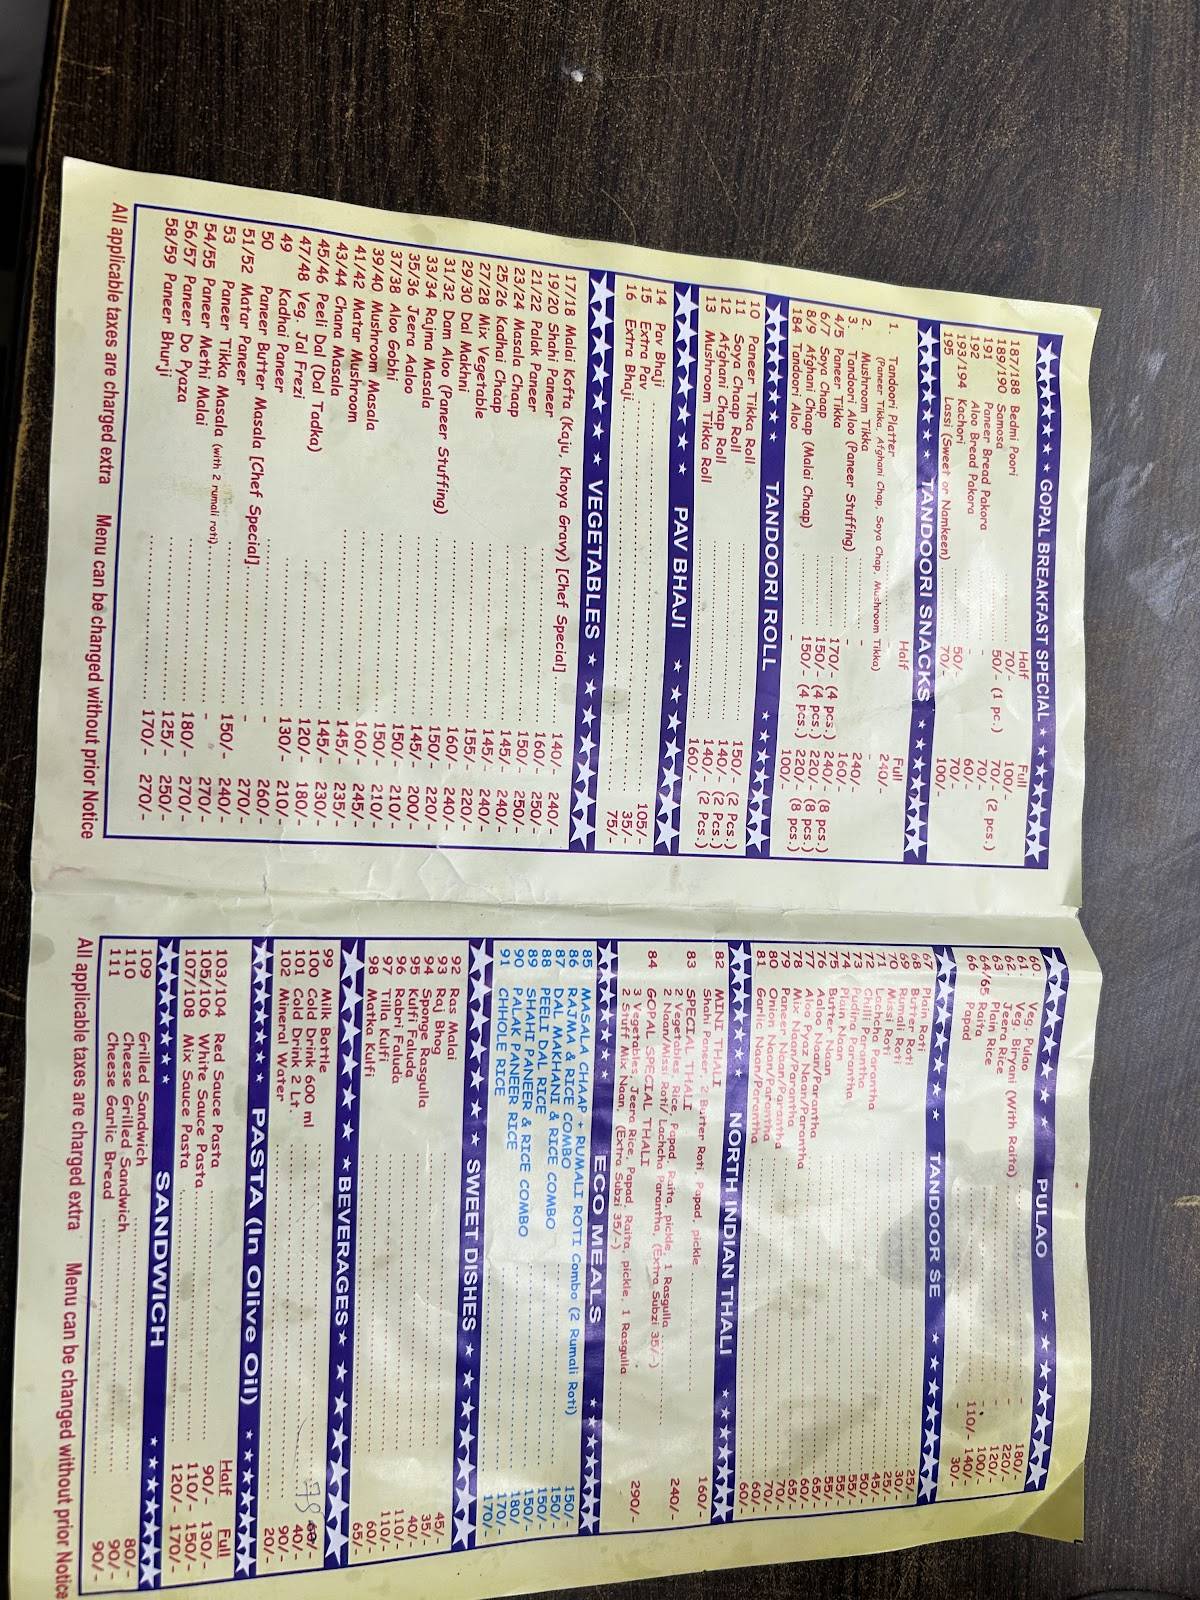 GOPAL BREAKFAST SPECIAL
Half Full
187/188 Bedmi Poori 70/- 100/-
189/190 Samosa 50/- (1 pc.) 70/- (2 pcs.)
191 Paneer Bread Pakora - 70/-
192 Aloo Bread Pakora - 60/-
193/194 Kachori 50/- 70/-
195 Lassi (Sweet or Namkeen) 70/- 100/-
TANDOORI SNACKS
Half Full
1. Tandoori Platter 240/-
(Paneer Tikka, Afghani Chap, Soya Chap, Mushroom Tikka)
2. Mushroom Tikka - 240/-
3. Tandoori Aloo (Paneer Stuffing) - 160/-
4/5 Paneer Tikka 170/- (4 pcs.) 240/- (8 pcs.)
6/7 Soya Chaap 150/- (4 pcs.) 220/- (8 pcs.)
8/9 Afghani Chaap (Malai Chaap) 150/- (4 pcs.) 220/- (8 pcs.)
184 Tandoori Aloo - 100/-
TANDOORI ROLL
10 Paneer Tikka Roll 150/- (2 Pcs.)
11 Soya Chaap Roll 140/- (2 Pcs.)
12 Afghani Chap Roll 140/- (2 Pcs.)
13 Mushroom Tikka Roll 160/-
PAV BHAJI
14 Pav Bhaji 105/-
15 Extra Pav 35/-
16 Extra Bhaji 75/-
VEGETABLES
17/18 Malai Kofta (Kaju, Khoya Gravy) [Chef Special] 140/- 240/-
19/20 Shahi Paneer 160/- 250/-
21/22 Palak Paneer 150/- 250/-
23/24 Masala Chaap 145/- 240/-
25/26 Kadhai Chaap 145/- 240/-
27/28 Mix Vegetable 155/- 220/-
29/30 Dal Makhni 160/- 240/-
31/32 Dam Aloo (Paneer Stuffing) 150/- 220/-
33/34 Rajma Masala 145/- 200/-
35/36 Jeera Aaloo 150/- 210/-
37/38 Aloo Gobhi 150/- 210/-
39/40 Mushroom Masala 160/- 245/-
41/42 Matar Mushroom 145/- 235/-
43/44 Chana Masala 145/- 230/-
45/46 Peeli Dal (Dal Tadka) 120/- 180/-
47/48 Veg. Jal Frezi 130/- 210/-
49 Kadhai Paneer - 260/-
50 Paneer Butter Masala [Chef Special] - 270/-
51/52 Matar Paneer 150/- 240/-
53 Paneer Tikka Masala (with 2 rumali roti) - 270/-
54/55 Paneer Methi Malai 180/- 270/-
56/57 Paneer Do Pyaza 125/- 250/-
58/59 Paneer Bhurji 170/- 270/-
All applicable taxes are charged extra Menu can be changed without prior Notice
PULAO
60. Veg. Pulao - 180/-
61. Veg. Biryani (With Raita) - 220/-
62. Jeera Rice - 120/-
63. Plain Rice - 100/-
64/65 Raita 110/- 140/-
66 Papad - 30/-
TANDOOR SE
67 Plain Roti 25/-
68 Butter Roti 30/-
69 Rumali Roti 25/-
70 Missi Roti 45/-
71 Lachcha Parantha 50/-
72 Chilli Parantha 55/-
73 Pudina Parantha 55/-
74 Plain Naan 55/-
75 Butter Naan 65/-
76 Aaloo Naan/Parantha 60/-
77 Aloo Pyaz Naan/Parantha 65/-
78 Mix Naan/Parantha 70/-
79 Paneer Naan/Parantha 70/-
80 Onion Naan/Parantha 60/-
81 Garlic Naan/Parantha 60/-
NORTH INDIAN THALI
82 MINI THALI 160/-
Shahi Paneer, 2 Butter Roti, Papad, pickle
83 SPECIAL THALI 240/-
2 Vegetables, Rice, Papad, Raita, pickle, 1 Rasgulla
2 Naan/Missi Roti/ Lachcha Parantha, (Extra Subzi 35/-)
84 GOPAL SPECIAL THALI 290/-
3 Vegetables, Jeera Rice, Papad, Raita, pickle, 1 Rasgulla
2 Stuff Mix Naan, (Extra Subzi 35/-)
ECO MEALS
85 MASALA CHAAP + RUMALI ROTI Combo (2 Rumali Roti) 150/-
86 RAJMA & RICE COMBO 150/-
87 DAL MAKHANI & RICE COMBO 150/-
88 PEELI DAL RICE 150/-
89 SHAHI PANEER & RICE COMBO 180/-
90 PALAK PANEER RICE 170/-
91 CHHOLE RICE 170/-
SWEET DISHES
92 Ras Malai 45/-
93 Raj Bhog 35/-
94 Sponge Rasgulla 40/-
95 Kulfi Faluda 110/-
96 Rabri Faluda 110/-
97 Tilla Kulfi 60/-
98 Matka Kulfi 65/-
BEVERAGES
99 Milk Bottle 60/- 75
100 Cold Drink 600 ml 40/-
101 Cold Drink 2 Lt. 90/-
102 Mineral Water 20/-
PASTA (In Olive Oil)
Half Full
103/104 Red Sauce Pasta 90/- 130/-
105/106 White Sauce Pasta 110/- 150/-
107/108 Mix Sauce Pasta 120/- 170/-
SANDWICH
109 Grilled Sandwich 80/-
110 Cheese Grilled Sandwich 90/-
111 Cheese Garlic Bread 90/-
All applicable taxes are charged extra Menu can be changed without prior Notice